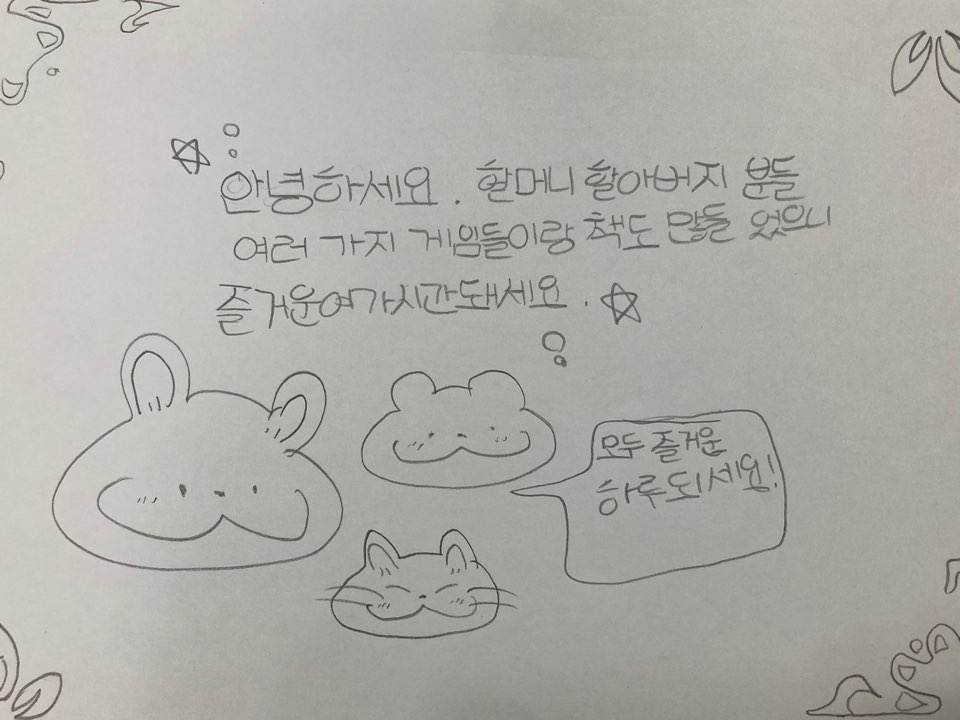 안녕하세요. 할머니 할아버지 분들
여러 가지 게임들이랑 책도 많들 었으니
즐거운여가시간돼세요.
모두 즐거운
하루되세요!